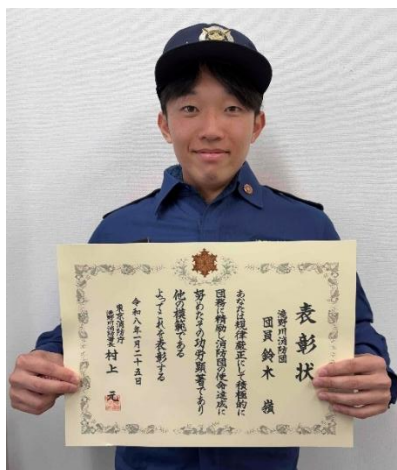 表彰状
滝野川消防団
団員 鈴木 嶺
あなたは規律厳正にして積極的に
団務に精励し消防団の使命達成に
努めたその功労顕著であり
他の模範である
よってこれを表彰する
令和八年一月二十五日
東京消防庁
滝野川消防署長 村上 元